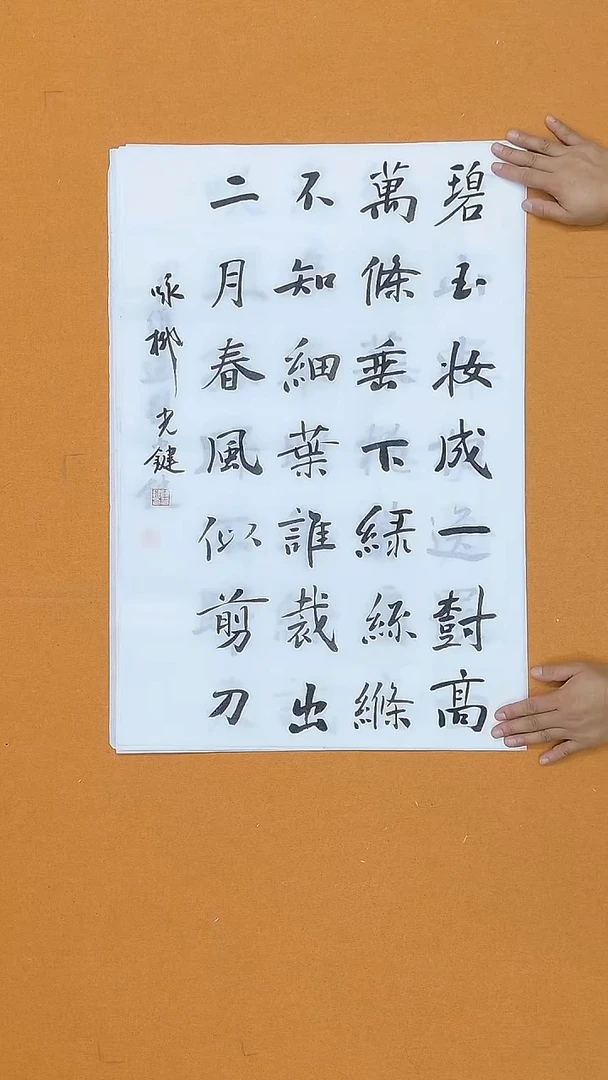 碧玉妆成一樹高
萬條垂下緑絲縧
不知細葉誰裁出
二月春風似剪刀
咏柳 光鍵